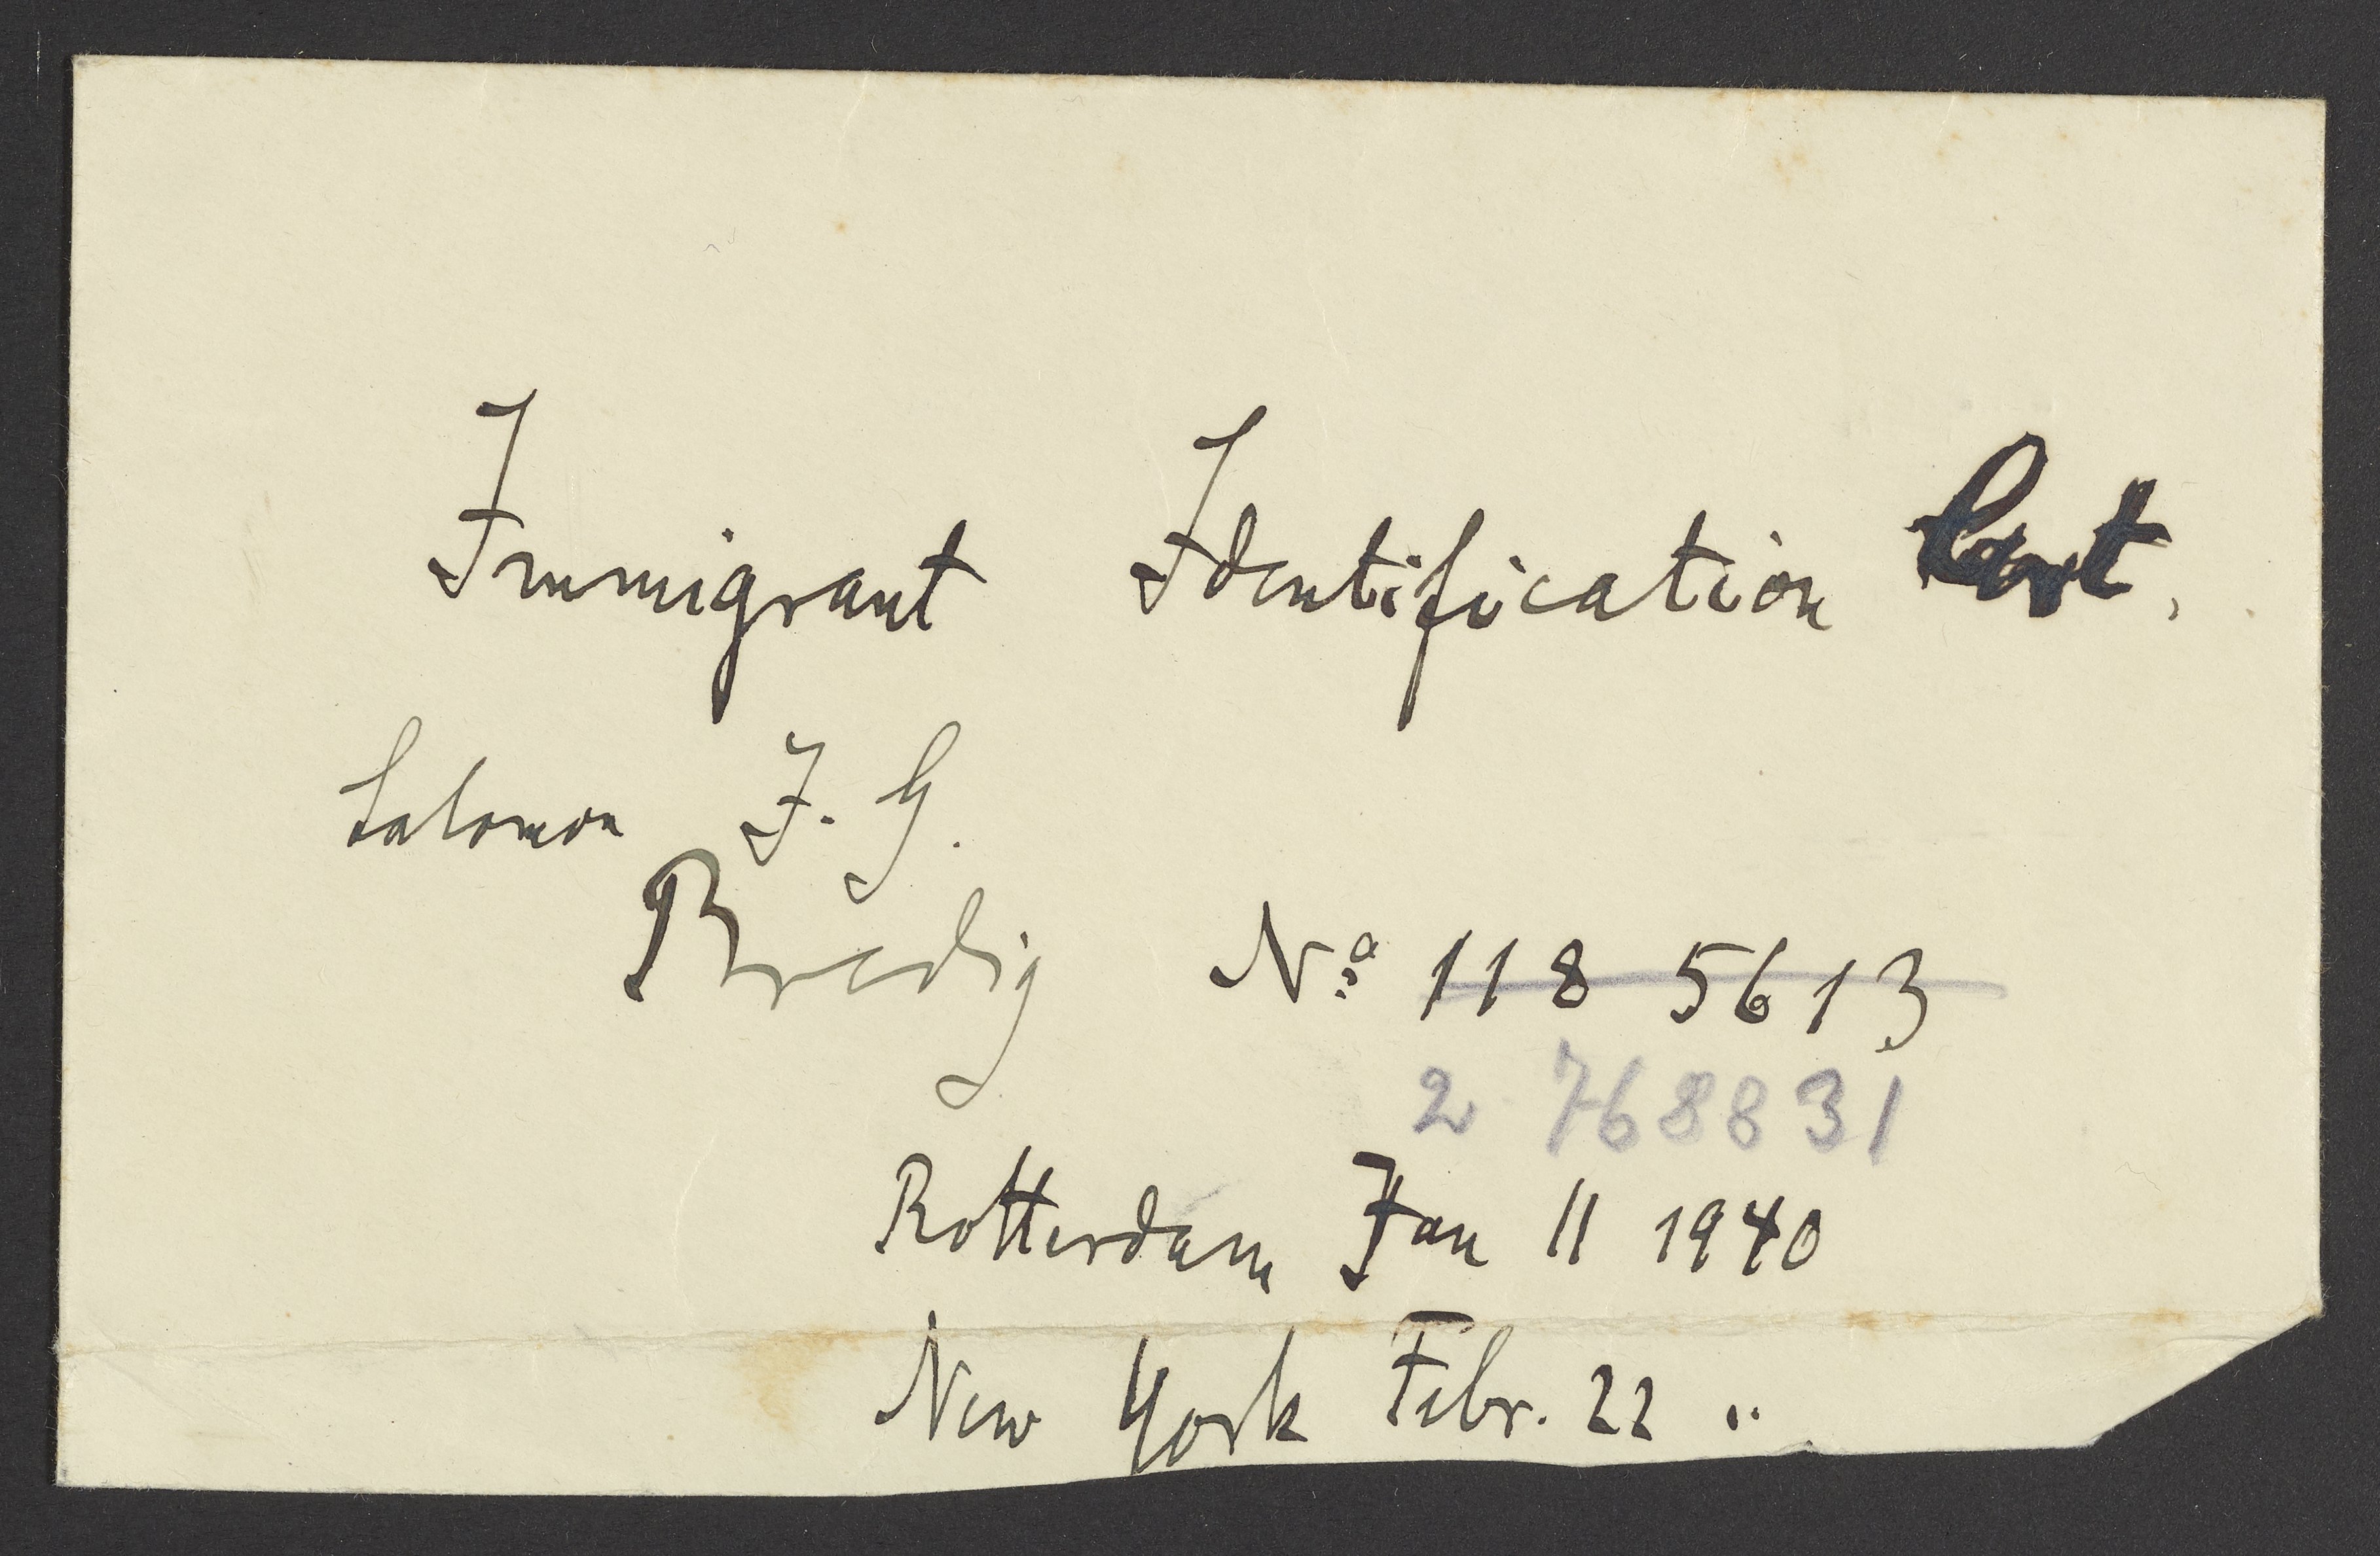 Immigrant Identification Cart.
Salomon J. G.
Bredig Nº 118 5613
2 768831
Rotterdam Jan 11 1940
New York Febr. 22 "